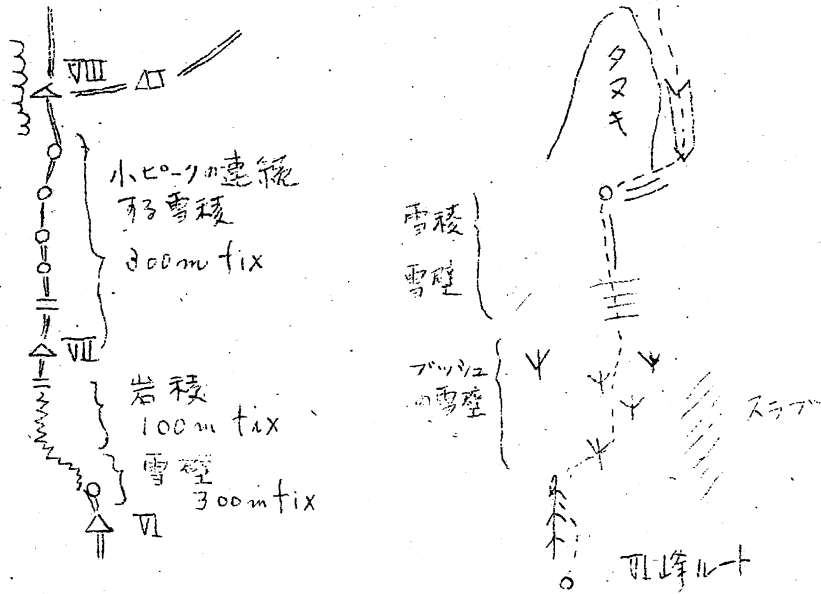 VIII
小ピークの連続
する雪稜
300m fix
VII
岩稜
100m fix
雪壁
300m fix
VI
タヌキ
雪稜
雪壁
ブッシュ
の雪壁
スラブ
VI峰ルート